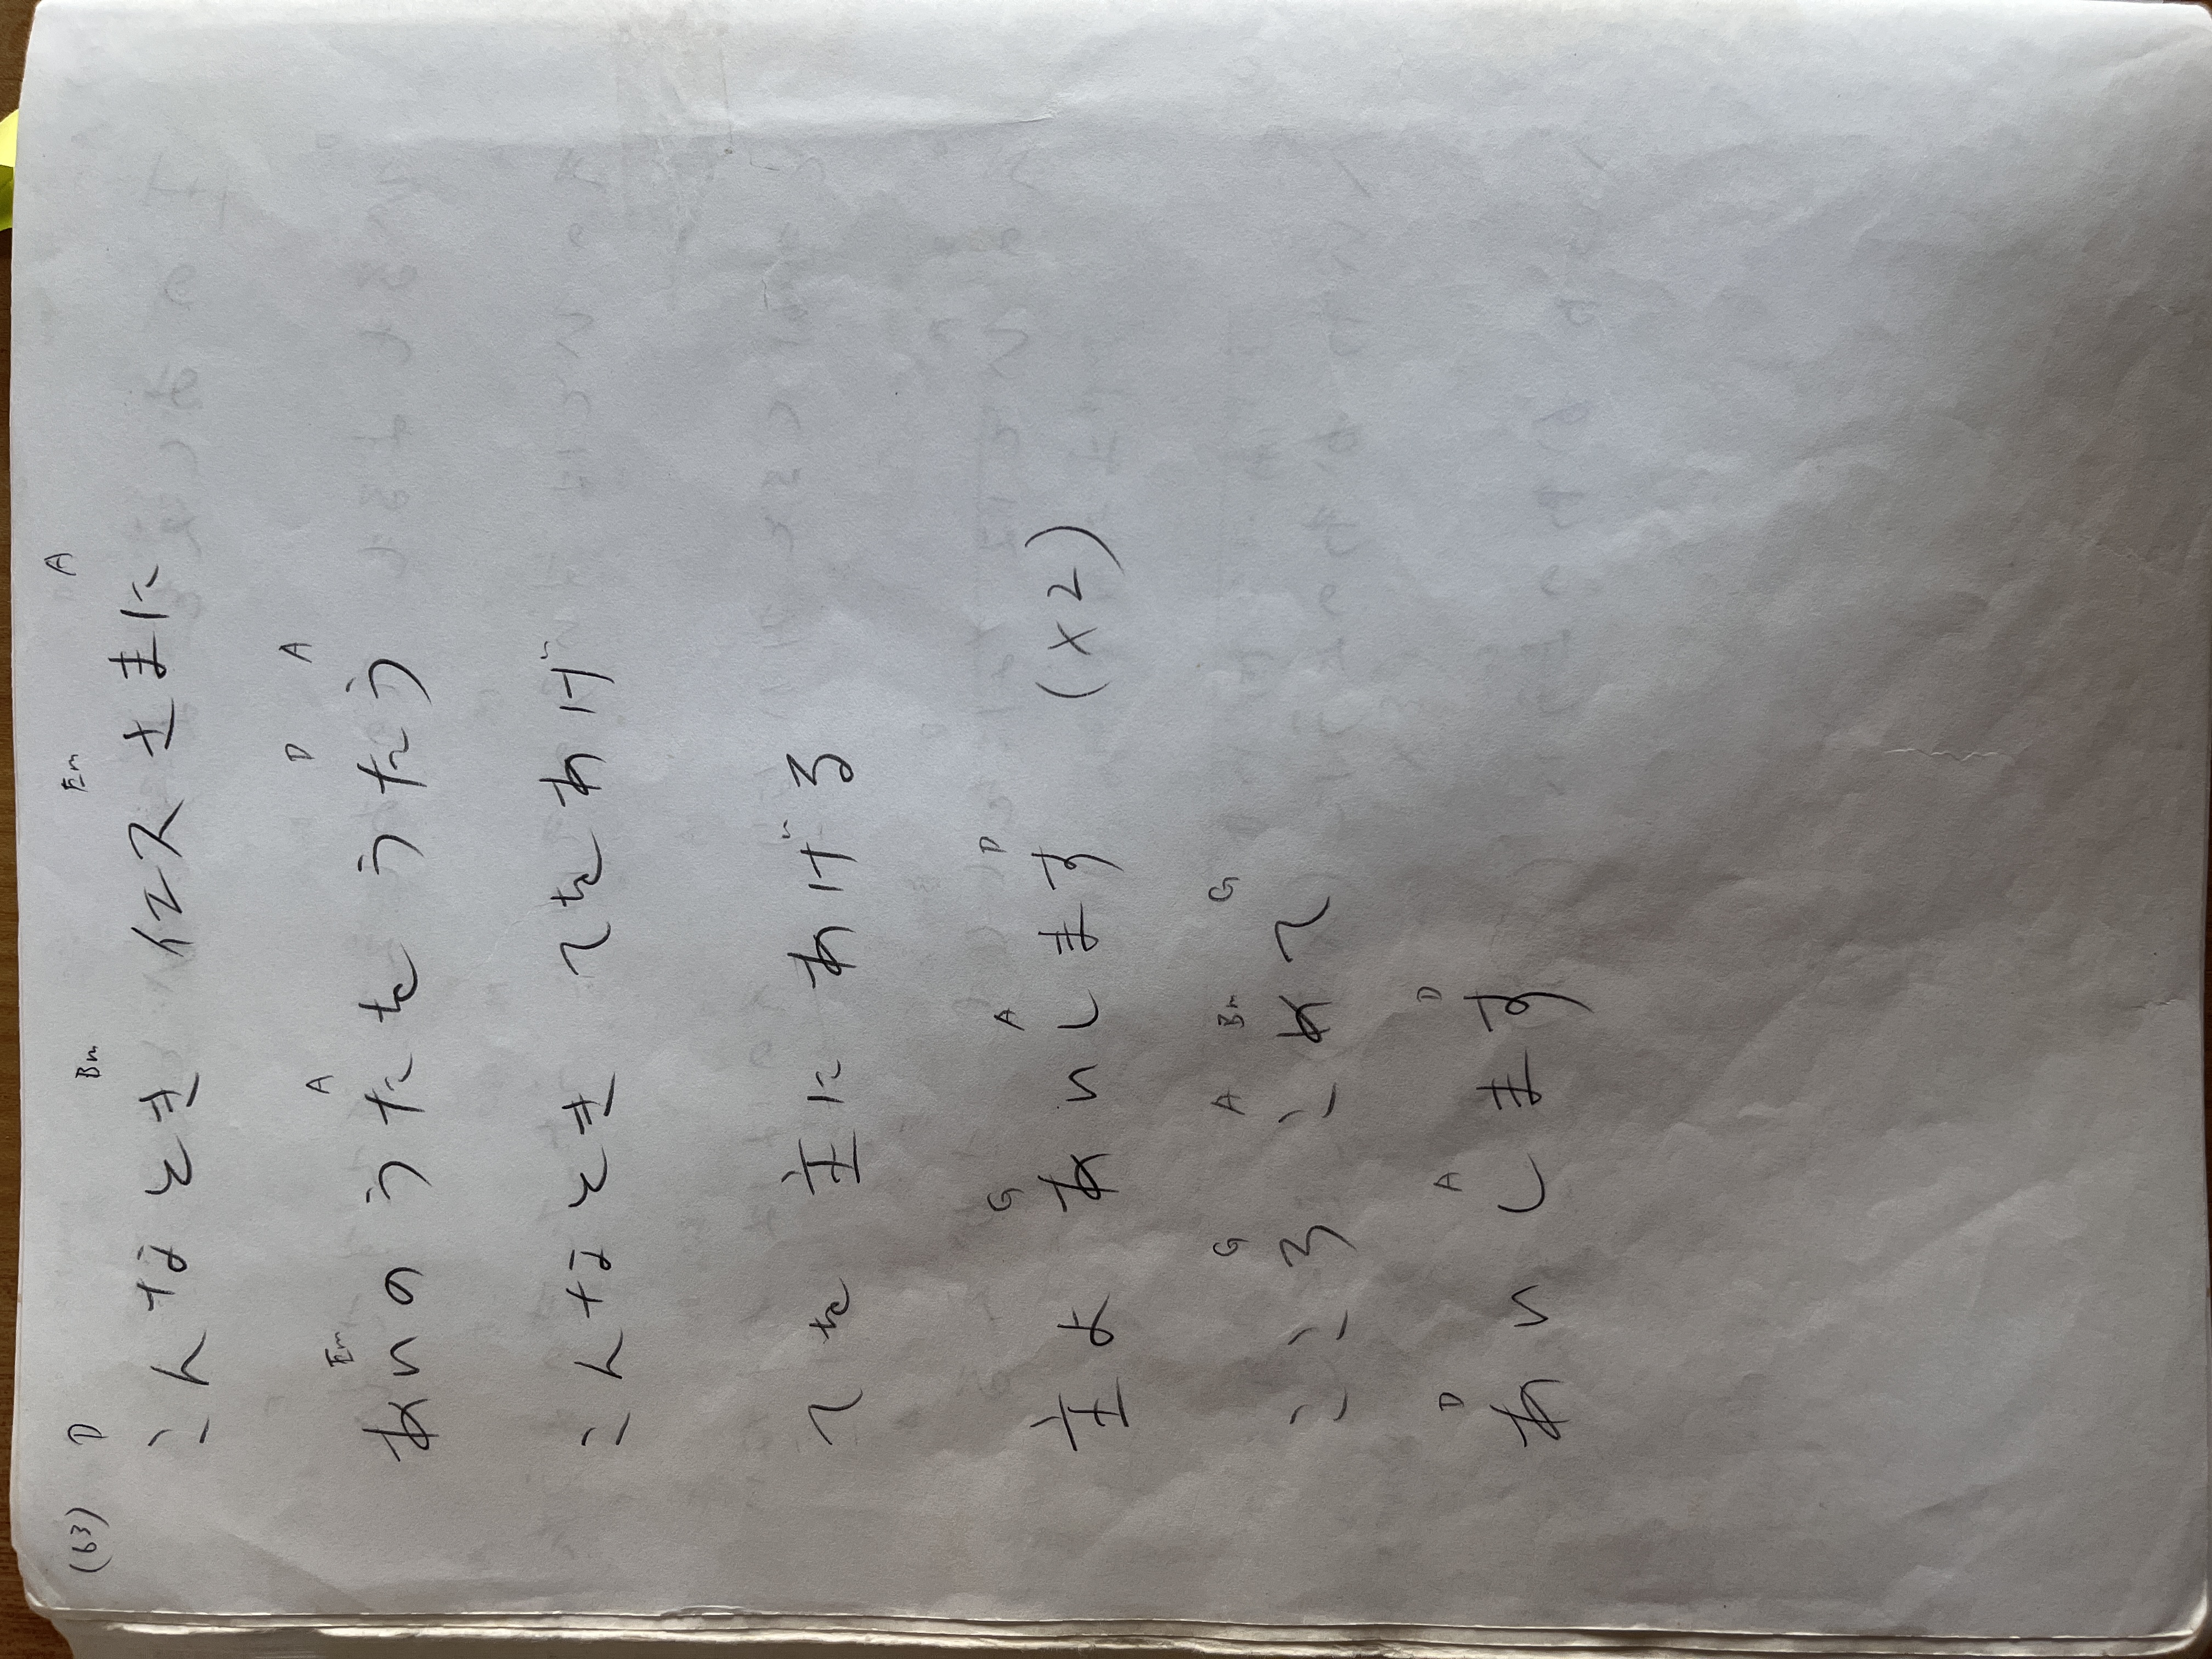 (63) D Bm Em A
こんなとき イエスさまに
Em A D A
あいのうたをうたう
こんなとき てをあげ
てを 主に あげる
G A D
主よ あいします (x2)
G A Bm G
こころ こめて
D A D
あいします